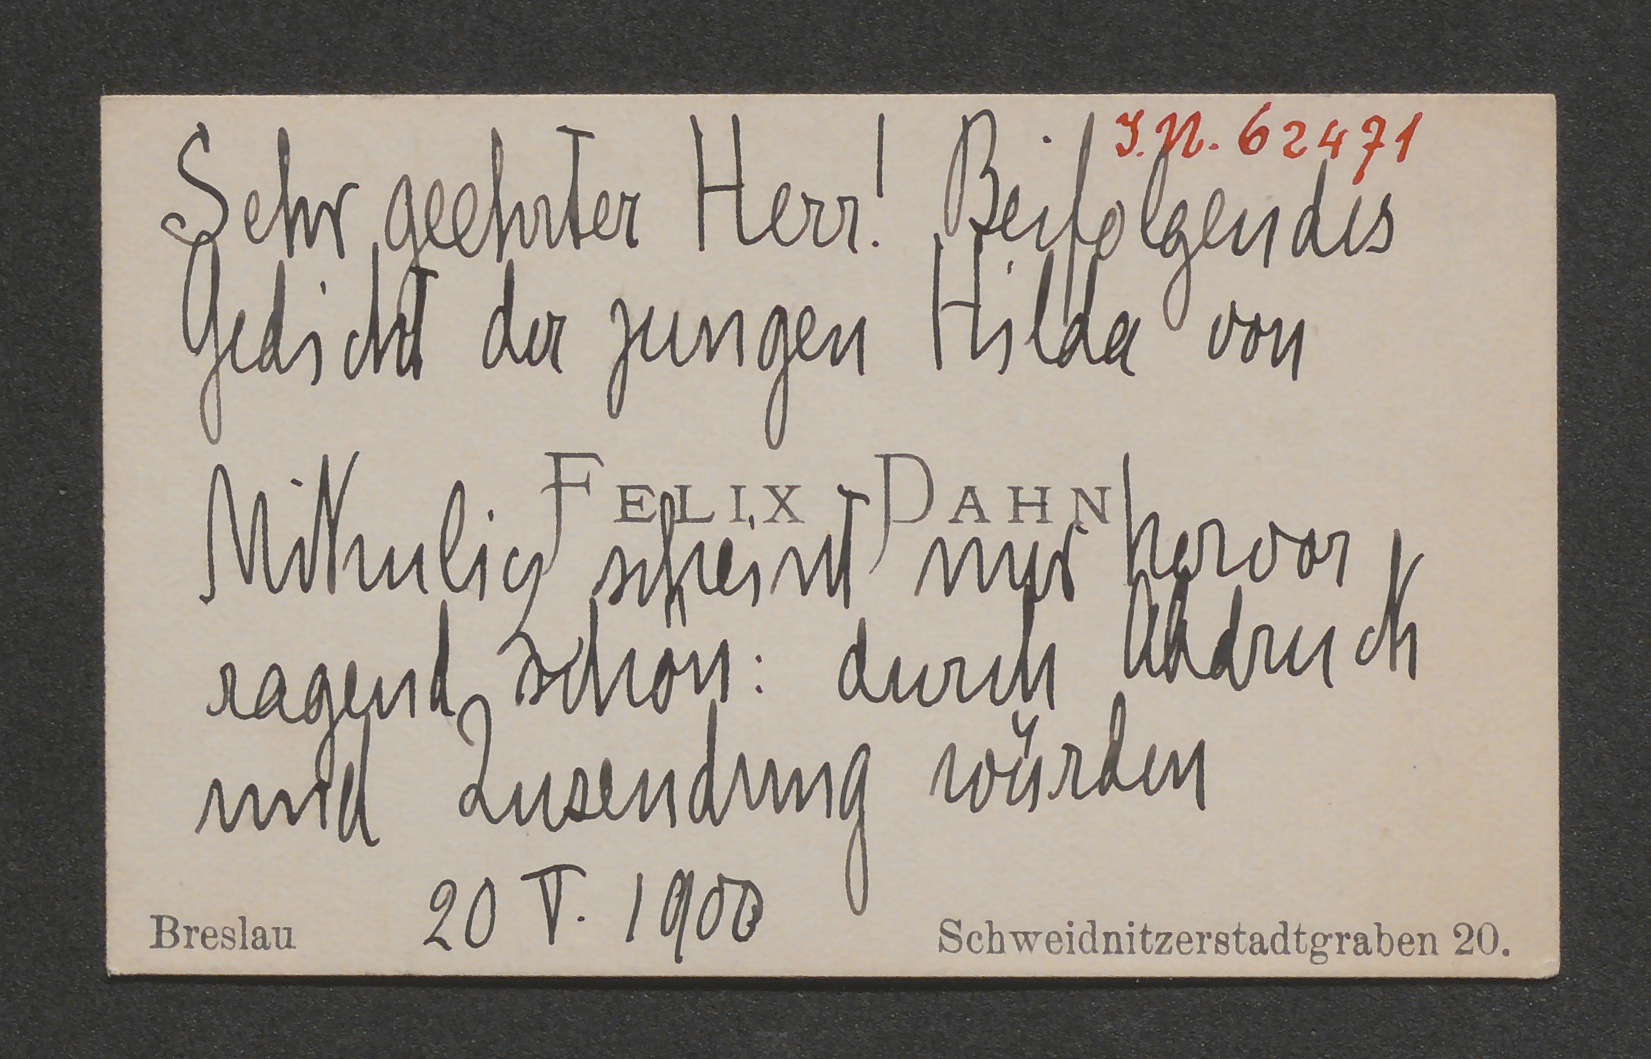 J.N. 62471
Sehr geehrter Herr! Beifolgendes
Gedicht der jungen Hilda von
FELIX DAHN
Mikulicz scheint mir hervor
ragend schön: durch Abdruck
und Zusendung würden
20 V. 1900
Breslau Schweidnitzerstadtgraben 20.